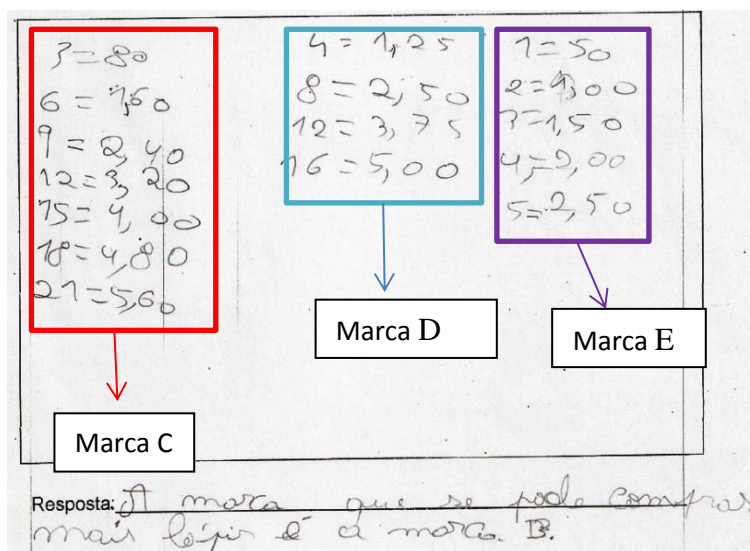 3=80
6=1,60
9=2,40
12=3,20
15=4,00
18=4,80
21=5,60
4=1,25
8=2,50
12=3,75
16=5,00
1=50
2=1,00
3=1,50
4,=2,00
5=2,50
Marca C
Marca D
Marca E
Resposta: A marca que se pode comprar
mais lápis é a marca B.